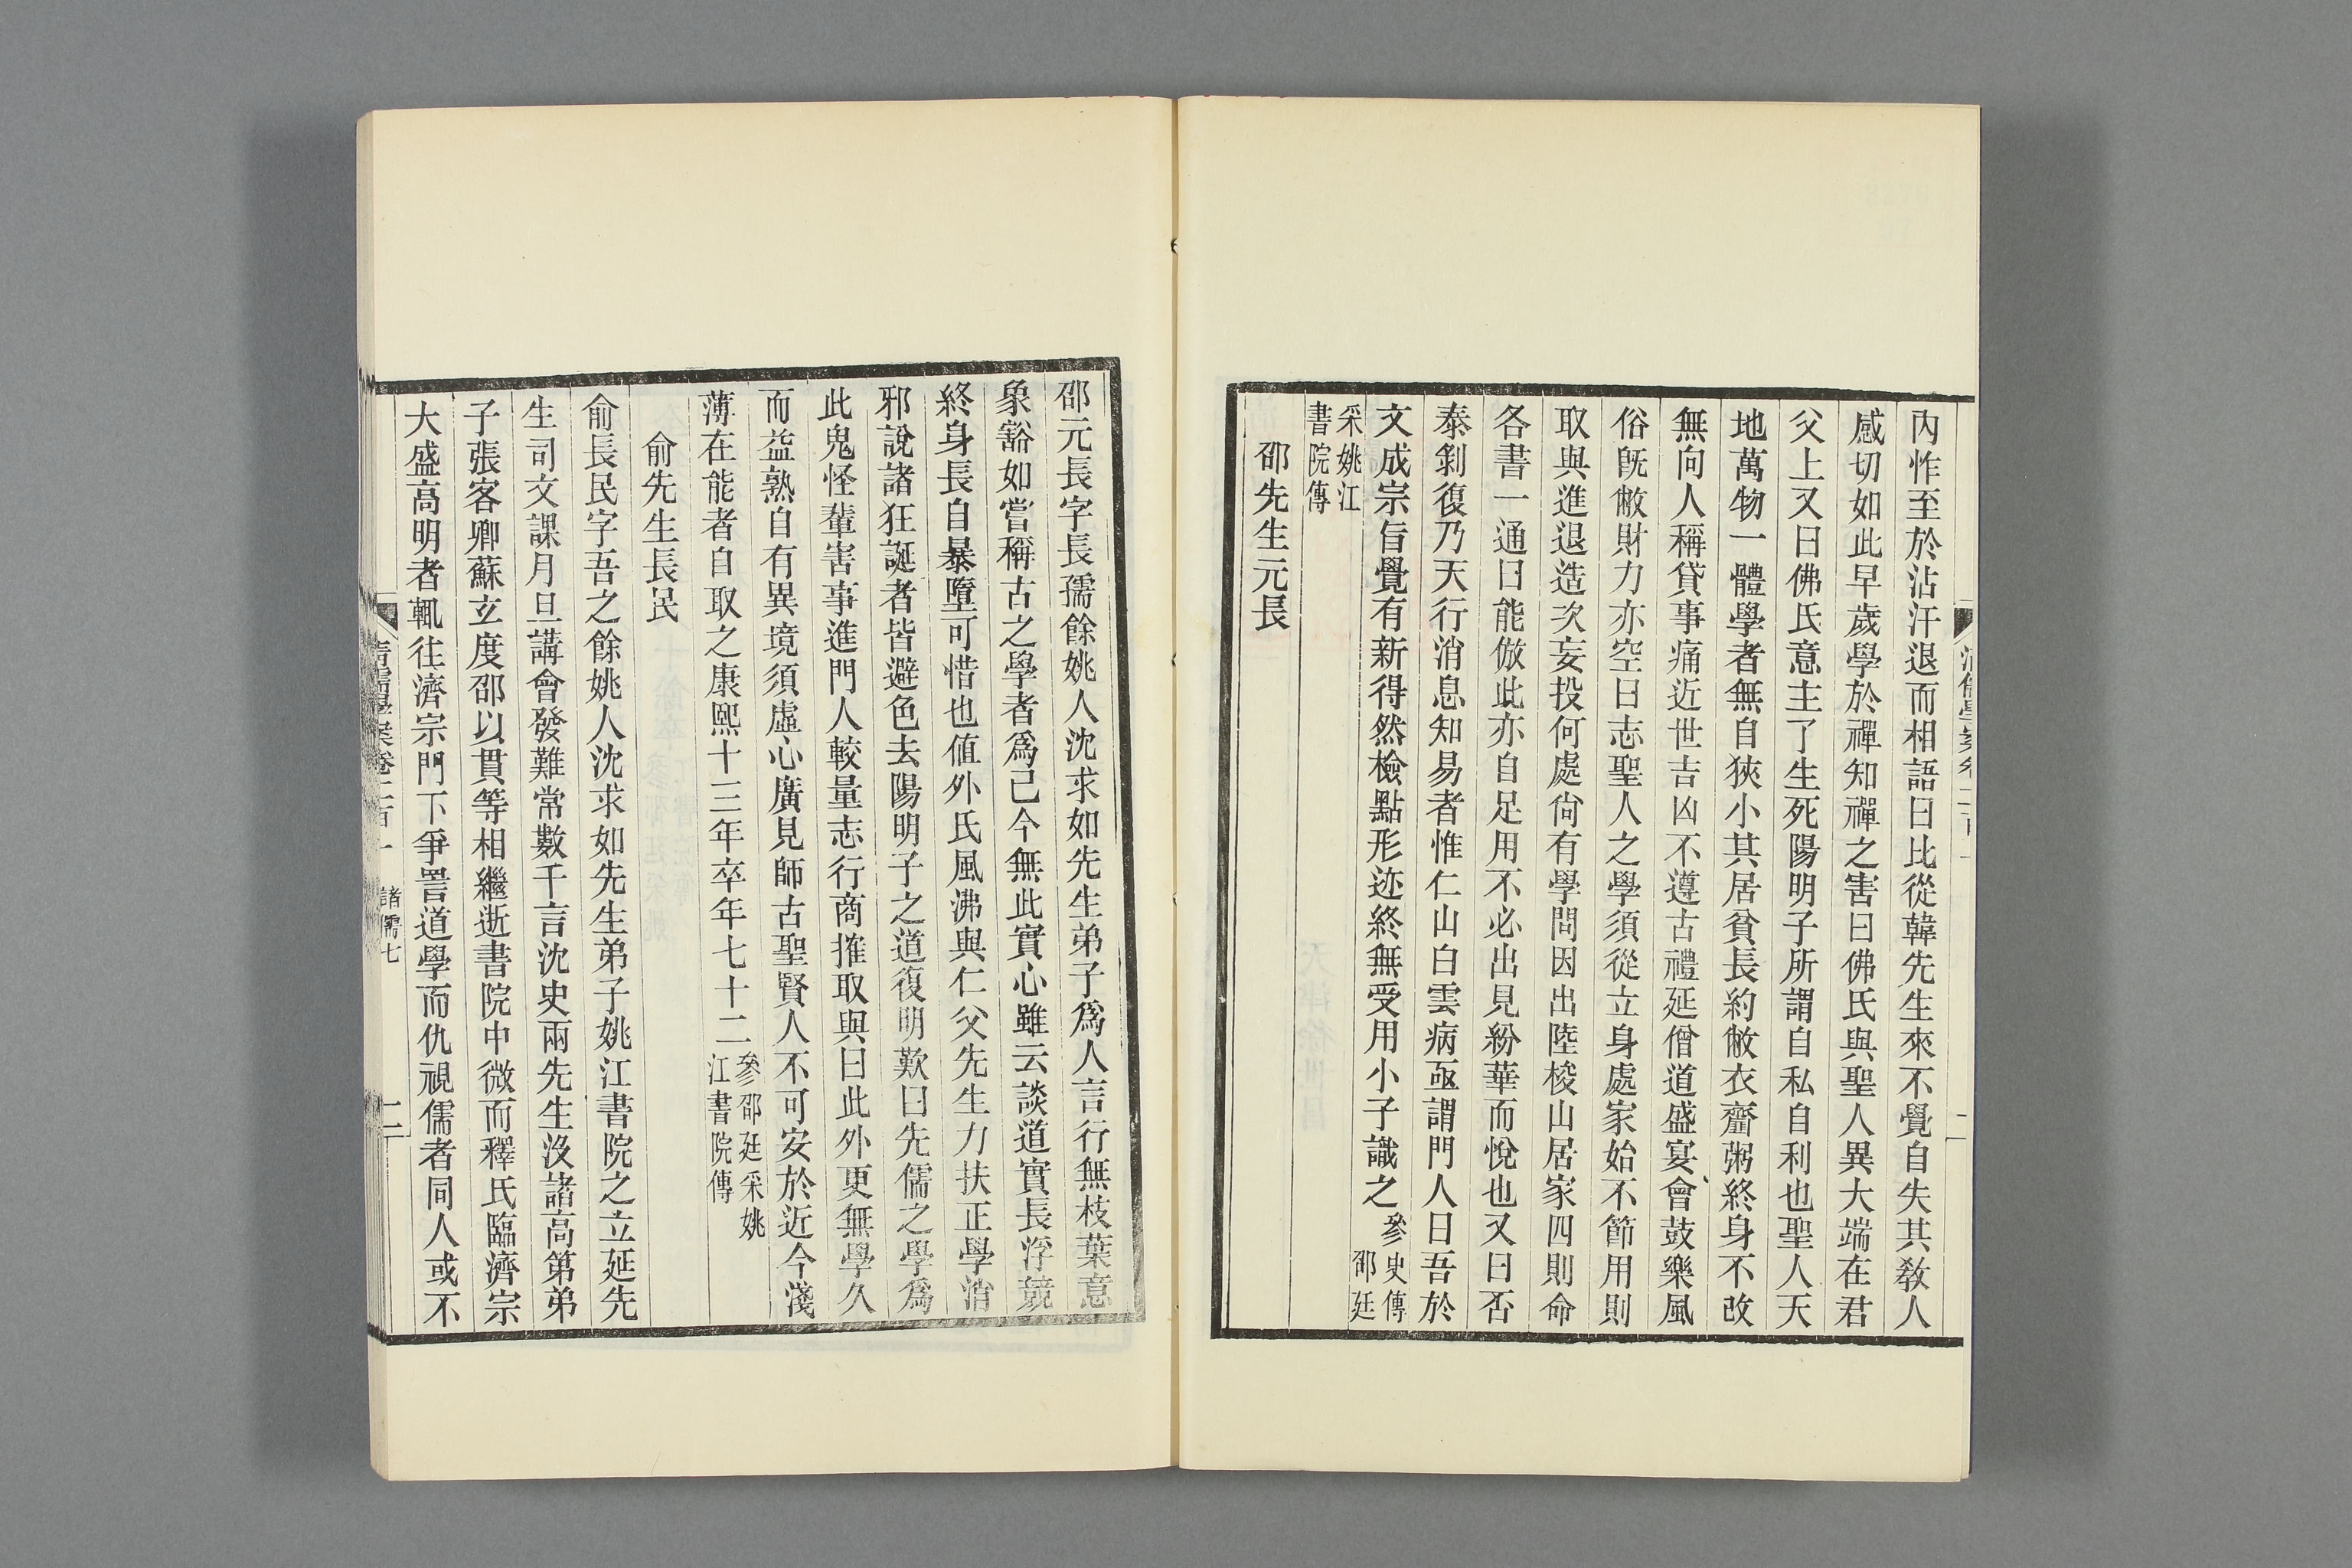 內怍至於沾汗退而相語曰比從韓先生來不覺自失其敎人
感切如此早歲學於禪知禪之害曰佛氏與聖人異大端在君
父上又曰佛氏意主了生死陽明子所謂自私自利也聖人天
地萬物一體學者無自狹小其居貧長約敝衣齏粥終身不改
無向人稱貸事痛近世吉凶不遵古禮延僧道盛宴會鼓樂風
俗旣敝財力亦空曰志聖人之學須從立身處家始不節用則
取與進退造次妄投何處尙有學問因出陸梭山居家四則命
各書一通曰能倣此亦自足用不必出見紛華而悅也又曰否
泰剝復乃天行消息知易者惟仁山白雲病亟謂門人曰吾於
文成宗旨覺有新得然檢點形迹終無受用小子識之參史傳邵廷
采姚江書院傳
邵先生元長
邵元長字長孺餘姚人沈求如先生弟子爲人言行無枝葉意
象豁如嘗稱古之學者爲己今無此實心雖云談道實長浮競
終身長自暴墮可惜也值外氏風沸與仁父先生力扶正學消
邪說諸狂誕者皆避色去陽明子之道復明歎曰先儒之學爲
此鬼怪輩害事進門人較量志行商搉取與曰此外更無學久
而益熟自有異境須虛心廣見師古聖賢人不可安於近今淺
薄在能者自取之康熙十三年卒年七十二參邵廷采姚江書院傳
俞先生長民
俞長民字吾之餘姚人沈求如先生弟子姚江書院之立延先
生司文課月旦講會發難常數千言沈史兩先生沒諸高第弟
子張客卿蘇玄度邵以貫等相繼逝書院中微而釋氏臨濟宗
大盛高明者輒往濟宗門下爭詈道學而仇視儒者同人或不
清儒學案卷二百一 諸儒七 二